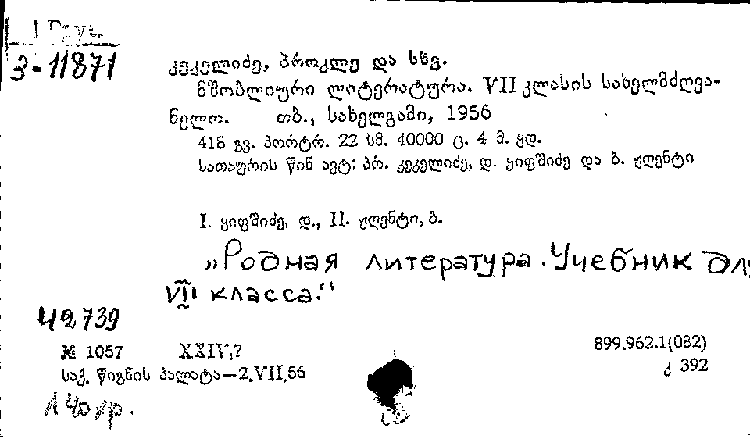 1 Груз.
3-11871
კეკელიძე, პროკლე და სხვ.
მშობლიური ლიტერატურა. VII კლასის სახელმძღვა-
ნელო. თბ., სახელგამი, 1956
418 გვ. პორტრ. 22 სმ. 40000 ც. 4 მ. ყდ.
სათაურის წინ ავტ: პრ. კეკელიძე, დ. ყიფშიძე და ბ. ჟღენტი
I. ყიფშიძე, დ., II. ჟღენტი, ბ.
„Родная литература. Учебник для
VII класса.“
42739
№ 1057 XXIV,7
899.962.1(082)
საქ. წიგნის პალატა—2.VII,56
კ 392